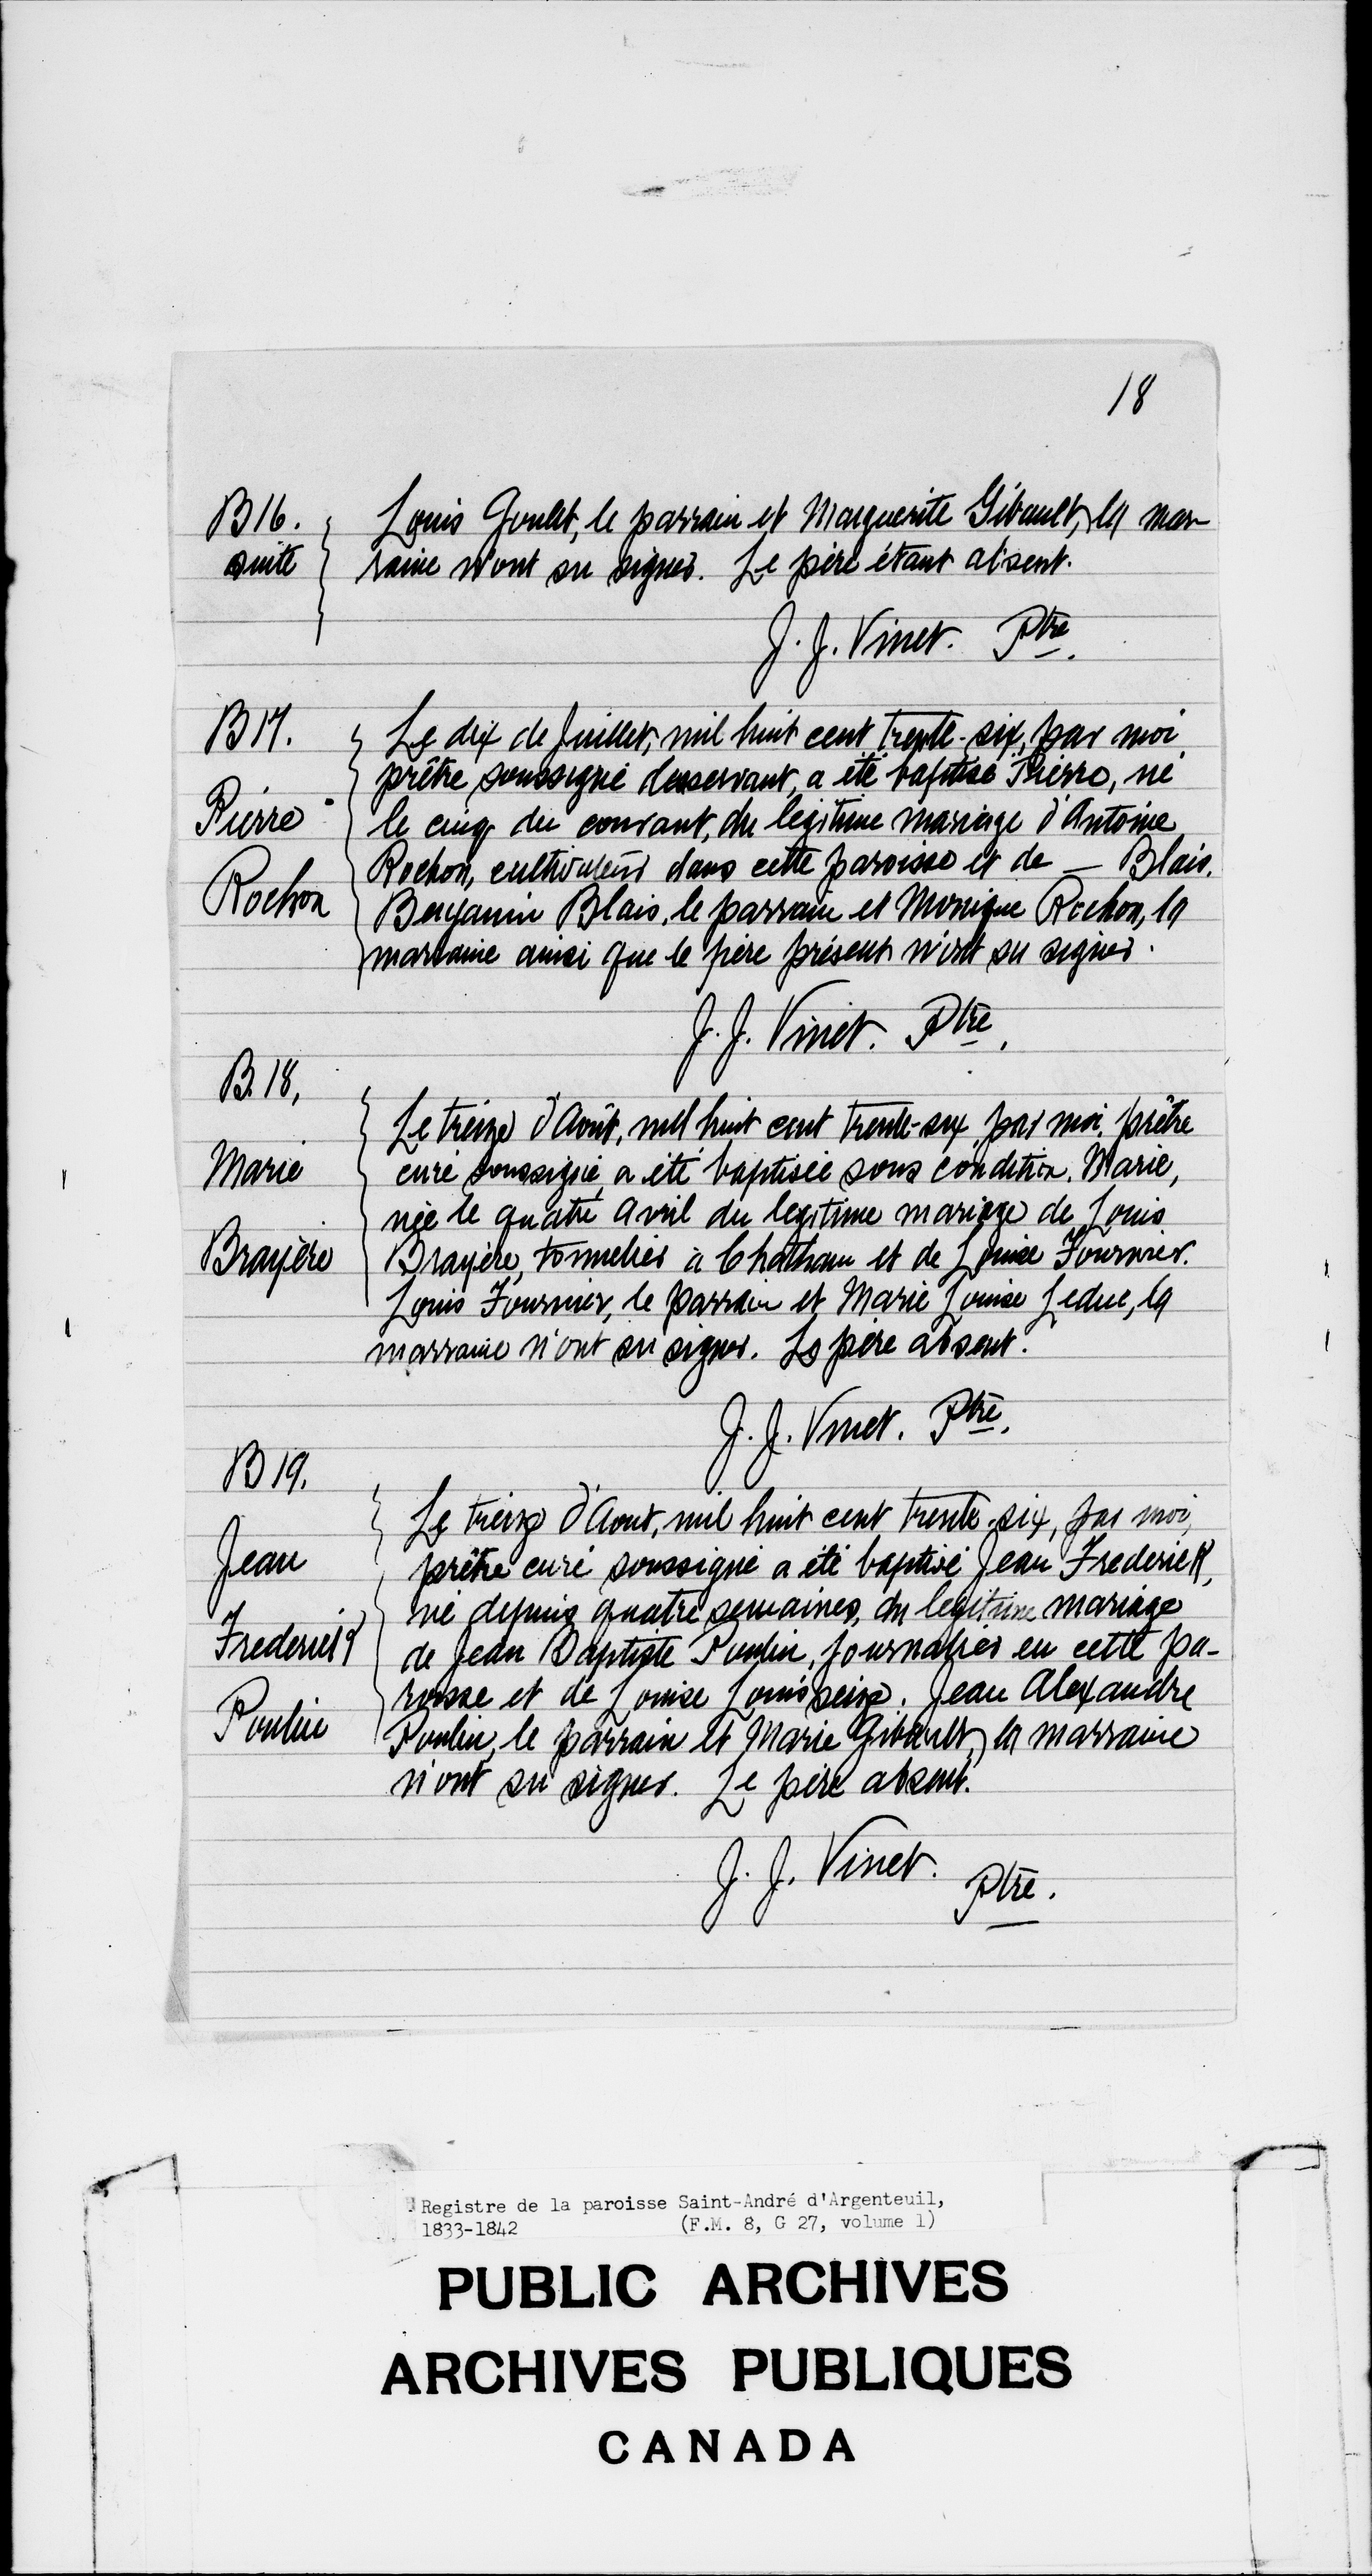 18
B16.
suite
Louis Goulet, le parrain et Marguerite Gibault, la mar-
raine n'ont su signer. Le père étant absent.
J. J. Vinet. Ptre.
B17.
Pierre
Rochon
Le dix de Juillet, mil huit cent trente-six, par moi
prêtre soussigné desservant, a été baptisé Pierre, né
le cinq du courant, du légitime mariage d'Antoine
Rochon, cultivateur dans cette paroisse et de — Blais.
Benjamin Blais, le parrain et Monique Rochon, la
marraine ainsi que le père présent n'ont su signer.
J. J. Vinet. Ptre.
B.18,
Marie
Brayère
Le treize d'Août, mil huit cent trente-six, par moi, prêtre
curé soussigné, a été baptisée sous condition, Marie,
née le quatre Avril du legitime mariage de Louis
Brayère, tonnelier à Chatham et de Louise Fournier.
Louis Fournier, le parrain et Marie Louise Leduc, la
marraine n'ont su signer. Le père absent.
J. J. Vinet. Ptre.
B19.
Jean
Frederick
Poulin
Le treize d'Aout, mil huit cent trente-six, par moi,
prêtre curé soussigné a été baptisé Jean Frederick,
né depuis quatre semaines, du legitime mariage
de Jean Baptiste Poulin, journalier en cette pa-
roisse et de Louise Louisseize. Jean Alexandre
Poulin, le parrain et Marie Gibault, la marraine
n'ont su signer. Le père absent.
J. J. Vinet. Ptre.
Registre de la paroisse Saint-André d'Argenteuil,
1833-1842 (F.M. 8, G 27, volume 1)
PUBLIC ARCHIVES
ARCHIVES PUBLIQUES
CANADA